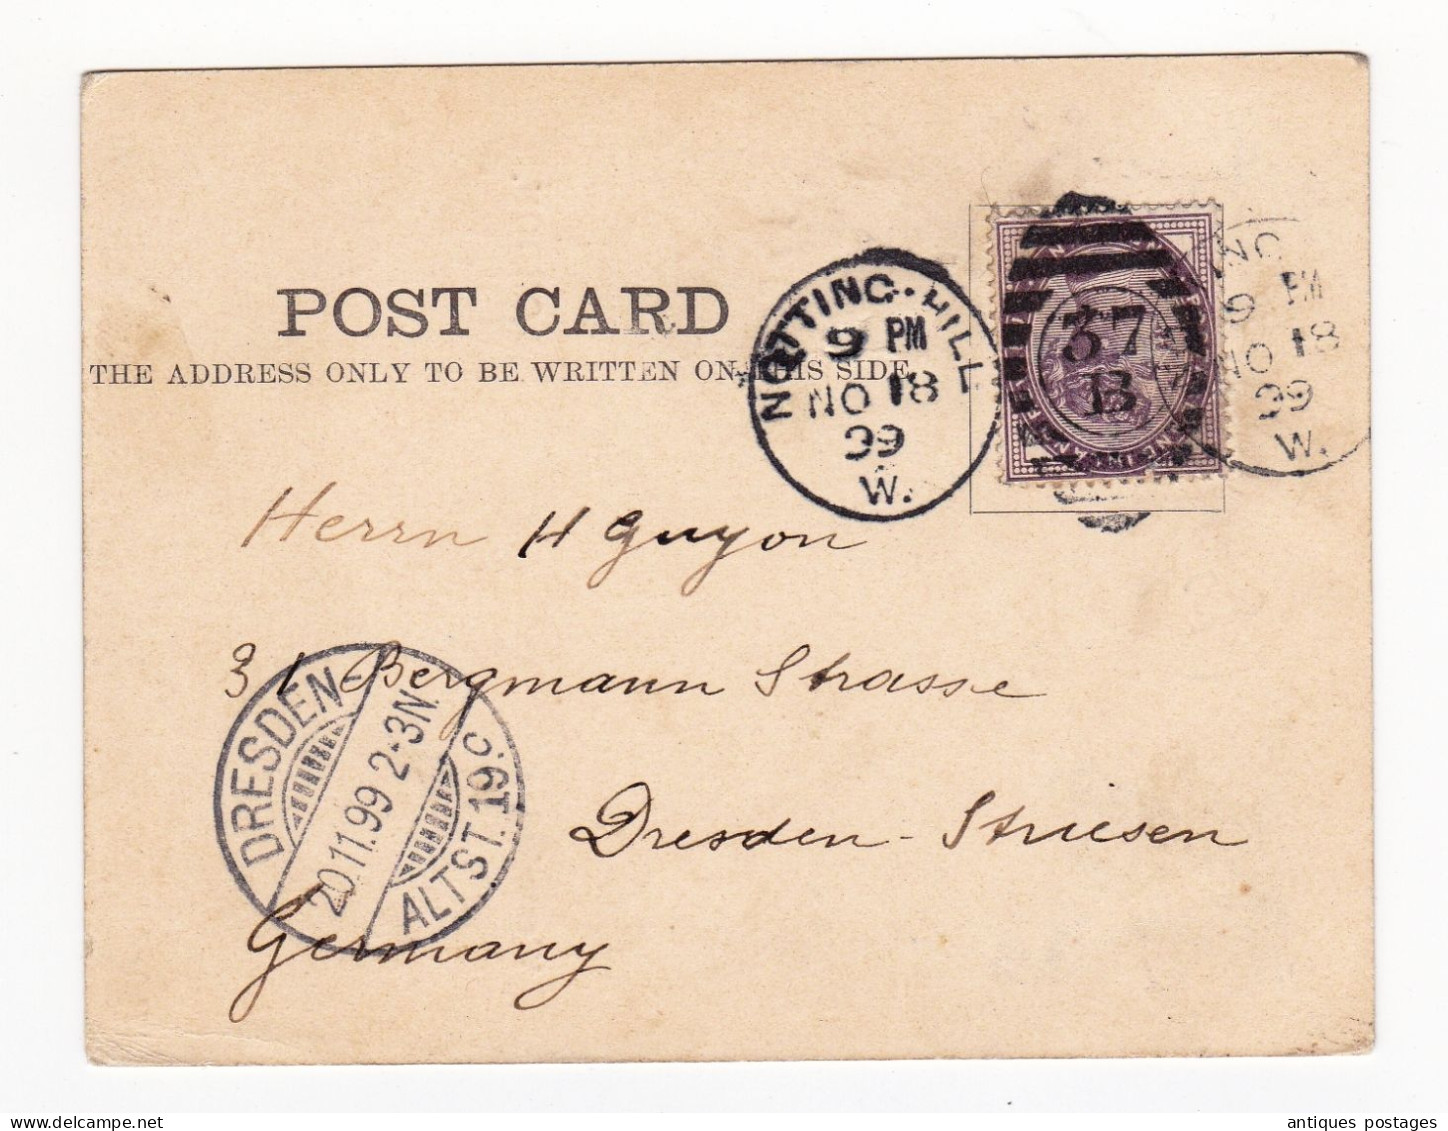 POST CARD
THE ADDRESS ONLY TO BE WRITTEN ON THIS SIDE.
NOTTING-HILL
9 PM
NO 18
99
W.
37
B
ING
9 PM
NO 18
99
W.
Herrn H Guyon
31 Bergmann Strasse
Dresden-Striesen
Germany
DRESDEN-
20.11.99 2-3N.
ALTST. 19 c.
delcampe.net
antiques postages